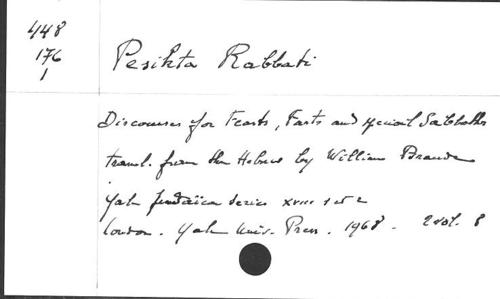 448
176
1
Pesikta Rabbati
Discourses for Feasts, Fasts and special Sabbaths
transl. from the Hebrew by William Braude
Yale Judaica Series XVIII 1 et 2
London. Yale Univ. Press. 1968. 2 vol. 8